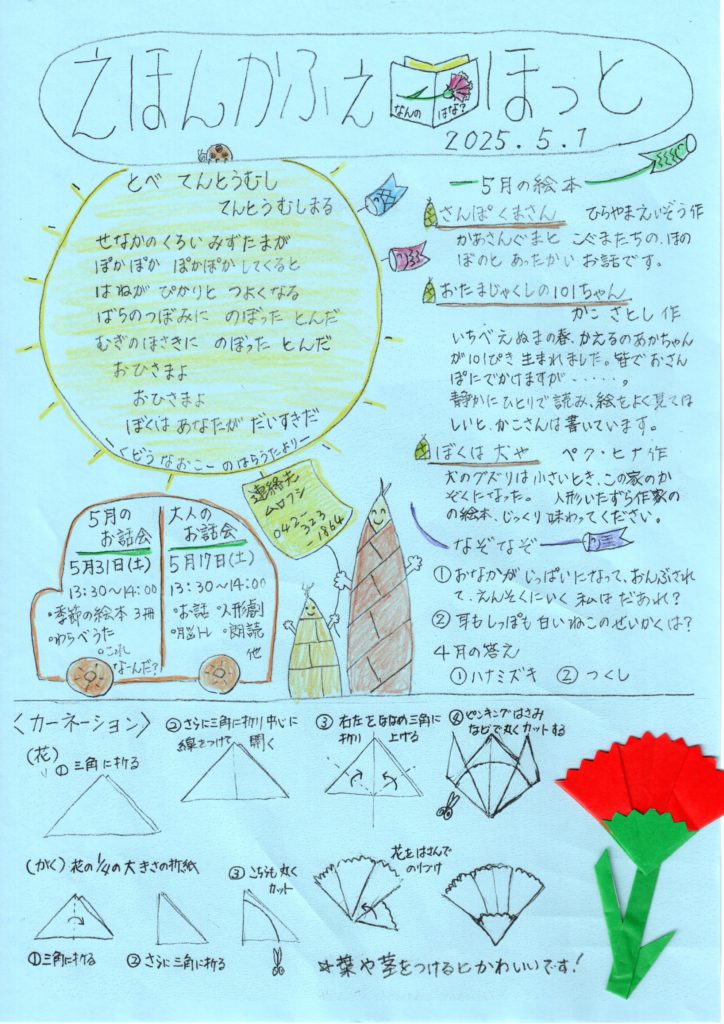 えほんかふぇ ほっと
なんの はな?
2025.5.1
とべ てんとうむし
てんとうむしまる
せなかのくろい みずたまが
ぽかぽか ぽかぽかしてくると
はねが ぴかりと つよくなる
ばらのつぼみに のぼった とんだ
むぎのほさきに のぼった とんだ
おひさまよ
おひさまよ
ぼくは あなたが だいすきだ
ーくどうなおこーのはらうたよりー
5月の絵本
さんぽくまさん ひらやまえいぞう作
かあさんぐまと こぐまたちの、ほの
ぼのと あったかい お話です。
おたまじゃくしの101ちゃん
かこ さとし 作
いちべえぬまの春、かえるのあかちゃん
が101ぴき 生まれました。皆でおさん
ぽにでかけますが・・・・・。
静かにひとりで読み、絵をよく見てほ
しいと、かこさんは書いています。
ぼくは犬や ペク・ヒナ作
犬のグズリは小さいとき、この家のか
ぞくになった。 人形いたずら作家の
の絵本、じっくり味わってください。
なぞなぞ
①おなかが いっぱいになって、おんぶされ
て、えんそくにいく 私は だあれ?
②耳もしっぽも白いねこのせいかくは?
4月の答え
①ハナミズキ ②つくし
連絡先
ムロフシ
042-
323
1864
5月の
お話会
5月31日(土)
13:30~14:00
・季節の絵本 3冊
・わらべうた
・これ
なーんだ?
大人の
お話会
5月17日(土)
13:30~14:00
・お話 ・人形劇
・脳トレ ・朗読
他
〈カーネーション〉
(花)
①三角に折る
②さらに三角に折り中心に
線をつけて 開く
③右左をななめ三角に
折り 上げる
④ピンキングはさみ
などで丸くカットする
(がく)花の1/4の大きさの折紙
①三角に折る
②さらに三角に折る
③こちらも丸く
カット
花をはさんで
のりづけ
☆葉や茎をつけるとかわいいです!